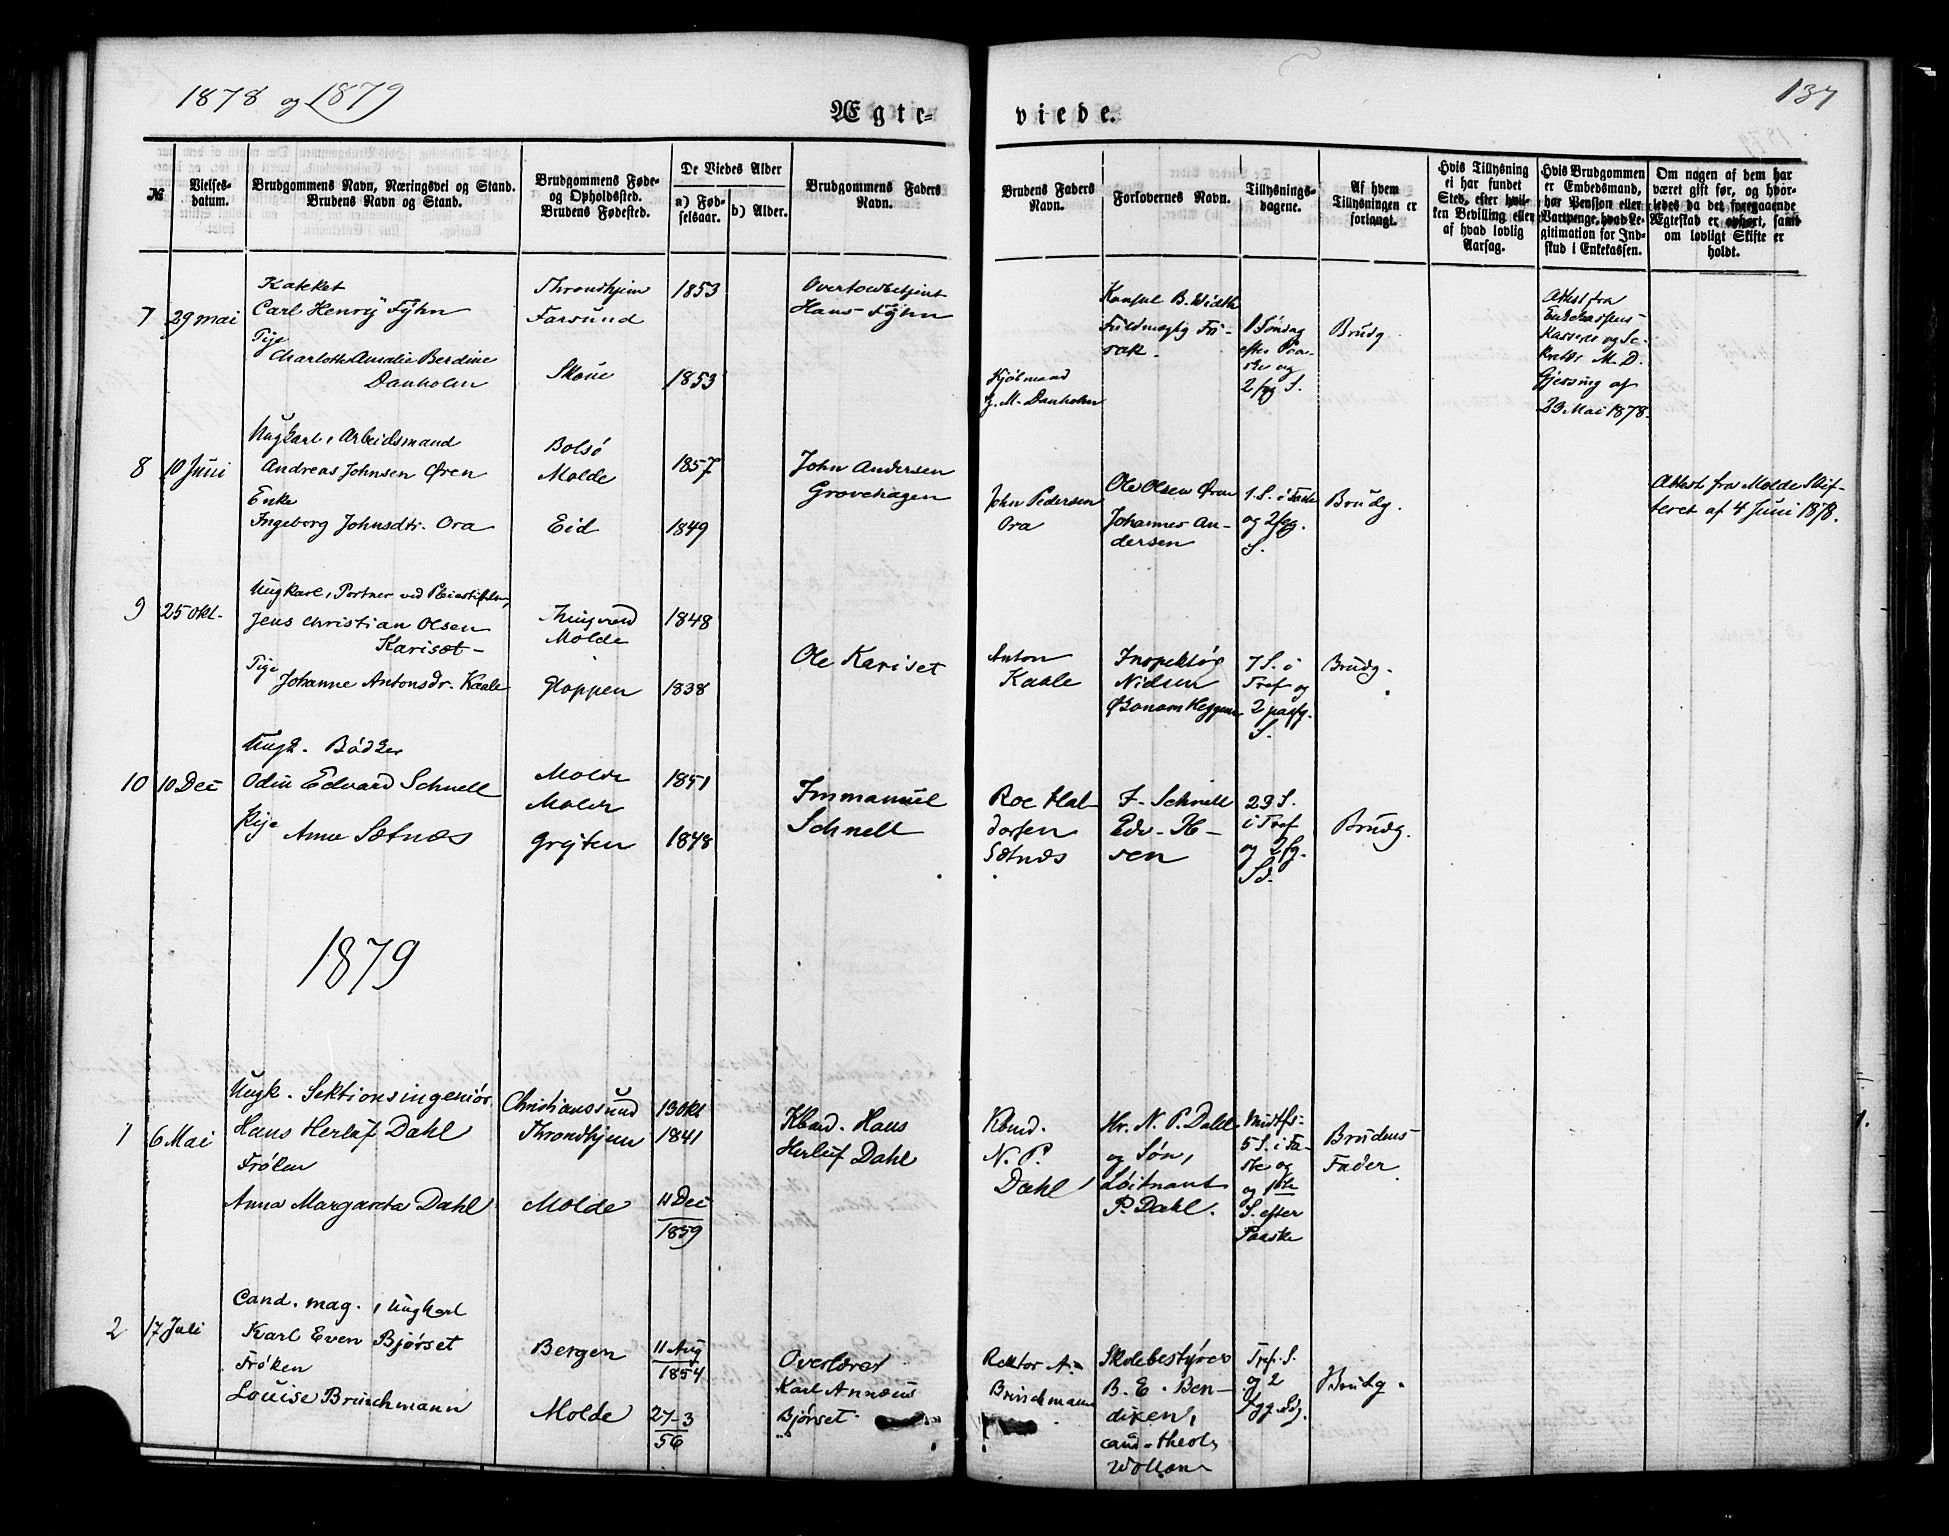 1878 og 1879
Ægte-
viede.
137
№
Vielses-
datum.
Brudgommens Navn, Næringsvei og Stand.
Brudens Navn og Stand.
Brudgommens Føde-
og Opholdssted.
Brudens Fødested.
De Viedes Alder
a) Fød-
selsaar.
b) Alder.
Brudgommens Faders
Navn.
Brudens Faders
Navn.
Forlovernes Navn.
Tillysnings-
dagene.
Af hvem
Tillysningen er
forlangt.
Hvis Tillysning
ei har fundet
Sted, efter hvil-
ken Bevilling eller
af hvad lovlig
Aarsag.
Hvis Brudgommen
er Embedsmand,
har Pension eller
Vartpenge, hvad Le-
gitimation for Ind-
skud i Enkekassen.
Om nogen af dem har
været gift før, og hvor-
ledes da det foregaaende
Ægteskab er ophørt, samt
om lovligt Skifte er
holdt.
7
29 mai
Carl Henrij Fÿhn
Pige
Charlotte Amalie Berdine
Danholm
Throndhjem
Farsund
Skoue
1853
1853
Overtoldbetjent
Hans Fÿhn
Kjøbmand
J. M. Danholm
Konsul B. Width
Fuldmægtig
1 Søndag
efter Paa-
ske og
2 fgg S.
Brudg.
Attest fra
Enkekassens
Kasserer og Se-
M. D.
Gjessing af
23 Mai 1878.
8
10 Juni
Ungkarl, Arbeidsmand
Andreas Johnsen Øren
Enke
Ingeborg Johnsdtr. Ora
Bolsø
Molde
Eid
1857
1849
John Andersen
Grovehagen
John Pedersen
Ora
Ole Olsen Øren
Johannes An-
dersen
1. S. i Faste
og 2 fgg.
S.
Brudg.
Attest fra Molde Skif-
teret af 4 Juni 1878.
9
25 Okt.
Ungkarl, Portner ved Pleiestiftelsen,
Jens Christian Olsen
Kariset-
Pige
Johanne Antonsdr. Kaale
Thingvold
Molde
Gloppen
1848
1838
Ole Kariset
Anton
Kaale
Inspektør
Nielsen
Økonom Heggem
7 S. i
Tref og
2 paafg.
S.
Brudg.
10
10 Dec
Ungk. Bødker
Odin Edvard Schnell
Pige
Anne Sætnæs
Molde
Molde
Grÿten
1851
1848
Immanuel
Schnell
Roe Hal-
dorsen
Sætnæs
F. Schnell
23 S.
i Tref
og 2 fg.
Sd.
Brudg.
1879
1
6 Mai
Ungk. Sektionsingeniør
Hans Herluf Dahl
Frøken
Anna Margareta Dahl
Christianssund
Throndhjem
Molde
13 Okt
1841
11 Dec
1859
Kbmd. Hans
Herluf Dahl
Kbmd.
N. P.
Dahl
Hr. N. P. Dahl
og Søn,
Løitnant
P. Dahl.
Midtfs-
5 S. i Fa-
ste og
og 1ste
S. efter
Paaske
Brudens
Fader
1.
2
17 Juli
Cand. mag., Ungkarl
Karl Even Bjørset
Frøken
Louise Brinchmann
Bergen
Molde
11 Aug
1854
27-3
56
Overlærer
Karl Annæus
Bjørset
Rektor A.
Brinchmann
Skolebestyrer
B. E. Ben-
dixen,
cand. theol.
Tref. S.
og 2
fgg. Sdg.
Brudg.